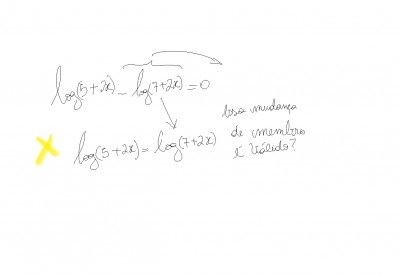 log(5+2x) - log(7+2x) = 0
log(5+2x) = log(7+2x)
Essa mudança
de membro
é válido?